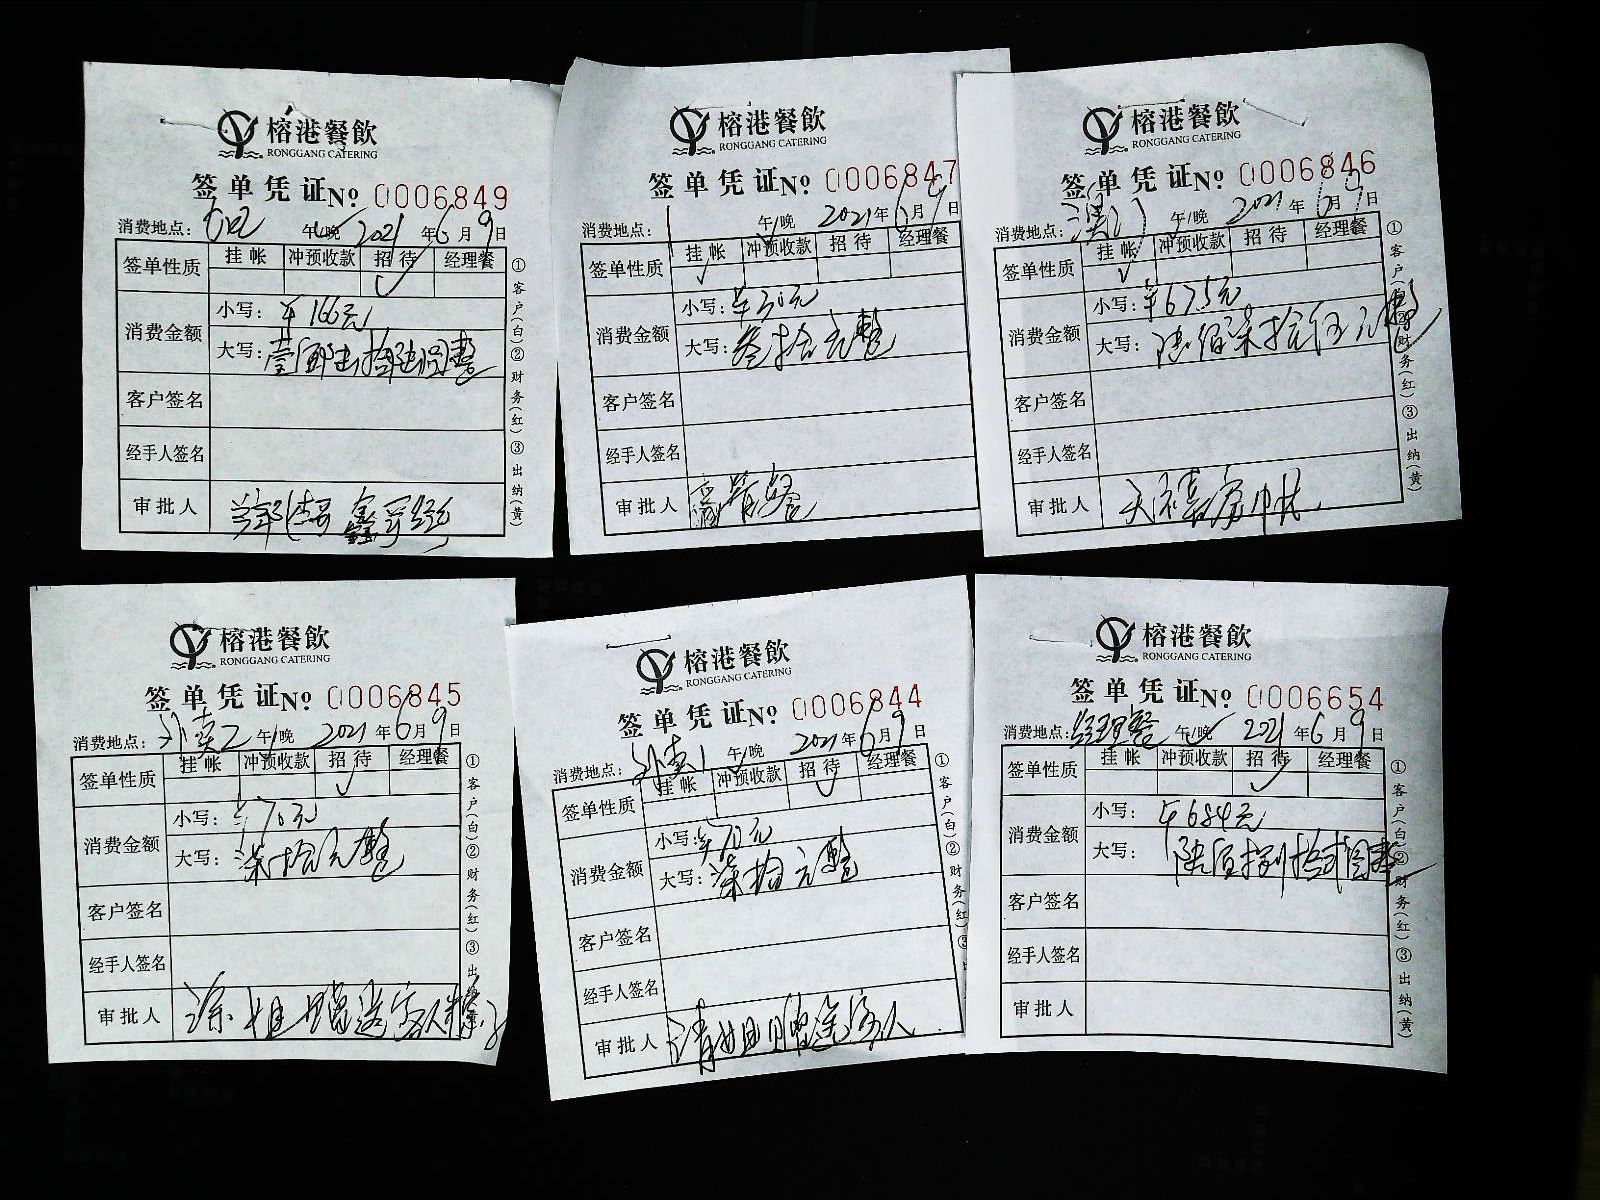 榕港餐飲
RONGGANG CATERING
签单凭证No 0006849
消费地点: 午/晚 2021年6月9日
签单性质 挂帐 冲预收款 招待 经理餐
✓
消费金额 小写: ¥166元
大写: 壹佰陆拾陆圆整
客户签名
经手人签名
审批人
①客户(白)②财务(红)③出纳(黄)
榕港餐飲
RONGGANG CATERING
签单凭证No 0006847
消费地点: 午/晚 2021年6月9日
签单性质 挂帐 冲预收款 招待 经理餐
✓
消费金额 小写: ¥30元
大写: 叁拾元整
客户签名
经手人签名
审批人
榕港餐飲
RONGGANG CATERING
签单凭证No 0006846
消费地点: 澳门 午/晚 2021年6月9日
签单性质 挂帐 冲预收款 招待 经理餐
✓
消费金额 小写: ¥675元
大写: 陆佰柒拾伍元整
客户签名
经手人签名
审批人
①客户(白)②财务(红)③出纳(黄)
榕港餐飲
RONGGANG CATERING
签单凭证No 0006845
消费地点: 外卖2 午/晚 2021年6月9日
签单性质 挂帐 冲预收款 招待 经理餐
✓
消费金额 小写: ¥70元
大写: 柒拾元整
客户签名
经手人签名
审批人
①客户(白)②财务(红)③出
榕港餐飲
RONGGANG CATERING
签单凭证No 0006844
消费地点: 外卖1 午/晚 2021年6月9日
签单性质 挂帐 冲预收款 招待 经理餐
✓
消费金额 小写: ¥70元
大写: 柒拾元整
客户签名
经手人签名
审批人
①客户(白)②财务(红)③
榕港餐飲
RONGGANG CATERING
签单凭证No 0006654
消费地点: 经理餐 午/晚 2021年6月9日
签单性质 挂帐 冲预收款 招待 经理餐
✓
消费金额 小写: ¥684元
大写:
客户签名
经手人签名
审批人
①客户(白)②财务(红)③出纳(黄)